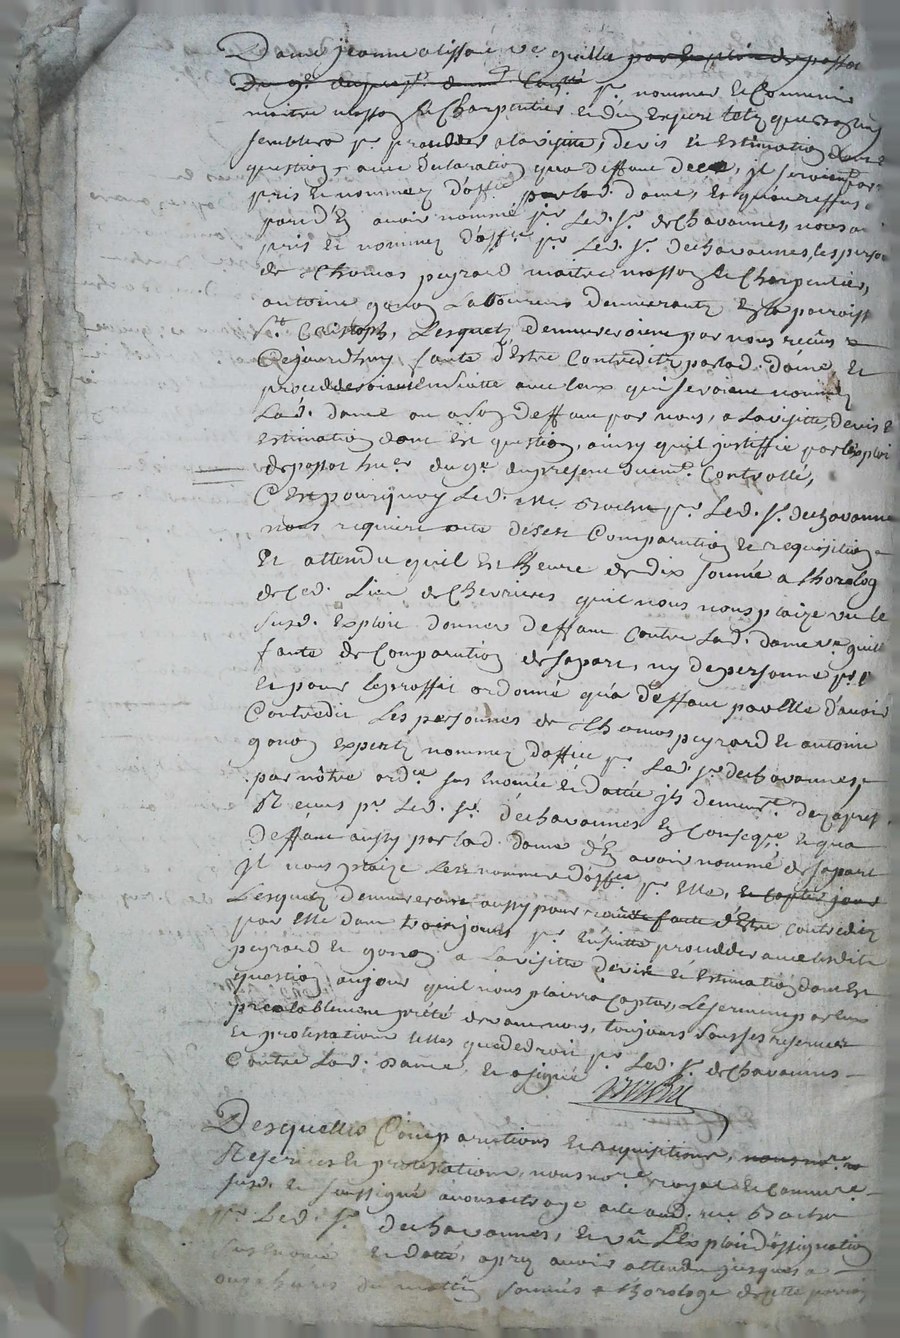 Dame jeanne alissan ve. quille par Exploit de possot
Du 9e. dupnt. pr. nommer Et Convenir
maitre masson & Charpentier Endix Experts telz que
semblera pr. proceder alavisitte, devis Et Estimation dont
question, avec declaration qua deffaut
pris Et nommez doffice par lad. dame, Et
avoir nommé pr. Led. Sr. de chavannes, nous
pris Et nommez d'office pr. Led. Sr. dechavannes, les perso
de Thomas peyrard maitre masson & Charpentier,
antoine gonon Laboureur demeurantz En la parroisse
St. Cristoph, Lesquels demeureroient par nous recus
Cejourdhuy faute d'Estre Contreditz par lad. dame Et
procederoient Ensuitte avec Ceux qui seroient nommez
Lad. dame ou a son deffaut par nous, a Lavisitte, devis &
Estimation dont Est question, ainsy quil justiffie par lExploit
de possot huer. du 9e. du present duement Controllé,
C'Est pourquoy Led. me. Brochu pr. Led. Sr. dechavannes
nous requiere acte deses Comparution Et requisition
Et attendu quil Est heure de dix sonnée a Lhorolog
de Ced. Lieu de Chevrieres quil nous plaize vu le
susd. Exploit donner deffaut Contre Lad. dame ve. quille
faute de Comparution desapart, ny de personne pr. E
Et pour le proffit ordonné qua deffaut par Elle d'avoir
Contredit Les personnes de Thomas peyrard Et antoine
gonon Expertz nommez d'office pr. Led. Sr. dechavannes,
par nôtre ordce. sus Enoncée Et dattée ils demeurt. dez apres
Recus pr. Led. Sr. dechavannes En Conseqce. Et qua
deffaut aussy par lad. dame d'En avoir nommé desapart
Il nous plaize Les nommer doffice pr. Elle,
Lesquelz demeureront aussy pour faute d'Estre Contreditz
par Elle dans trois jours pr. Ensuitte proceder avec lesdits
peyrard Et gonon a Lavisitte devis Et Estimation dont Est
question aujour quil nous plairra Capter, Le serment par Eux
prealablement prété devant nous, toujours sousses reserves
Et protestations telles quededroit pr. Led. Sr. de Chavannes
Contre Lad. Dame, Et asigné
Brochu
Desquelles Comparutions Et requisitions,
Reserves Et protestations, nous royal Et Commre.
susd. Et soussigné avons octroyé acte aud. me. Brochu
pr. Led. Sr. dechavannes, Et vû LExploit d'assignation
sus Enoncé Et datté, apres avoir attendu jusques a
onze heures du mattin sonnées a Lhorologe decette parroisse